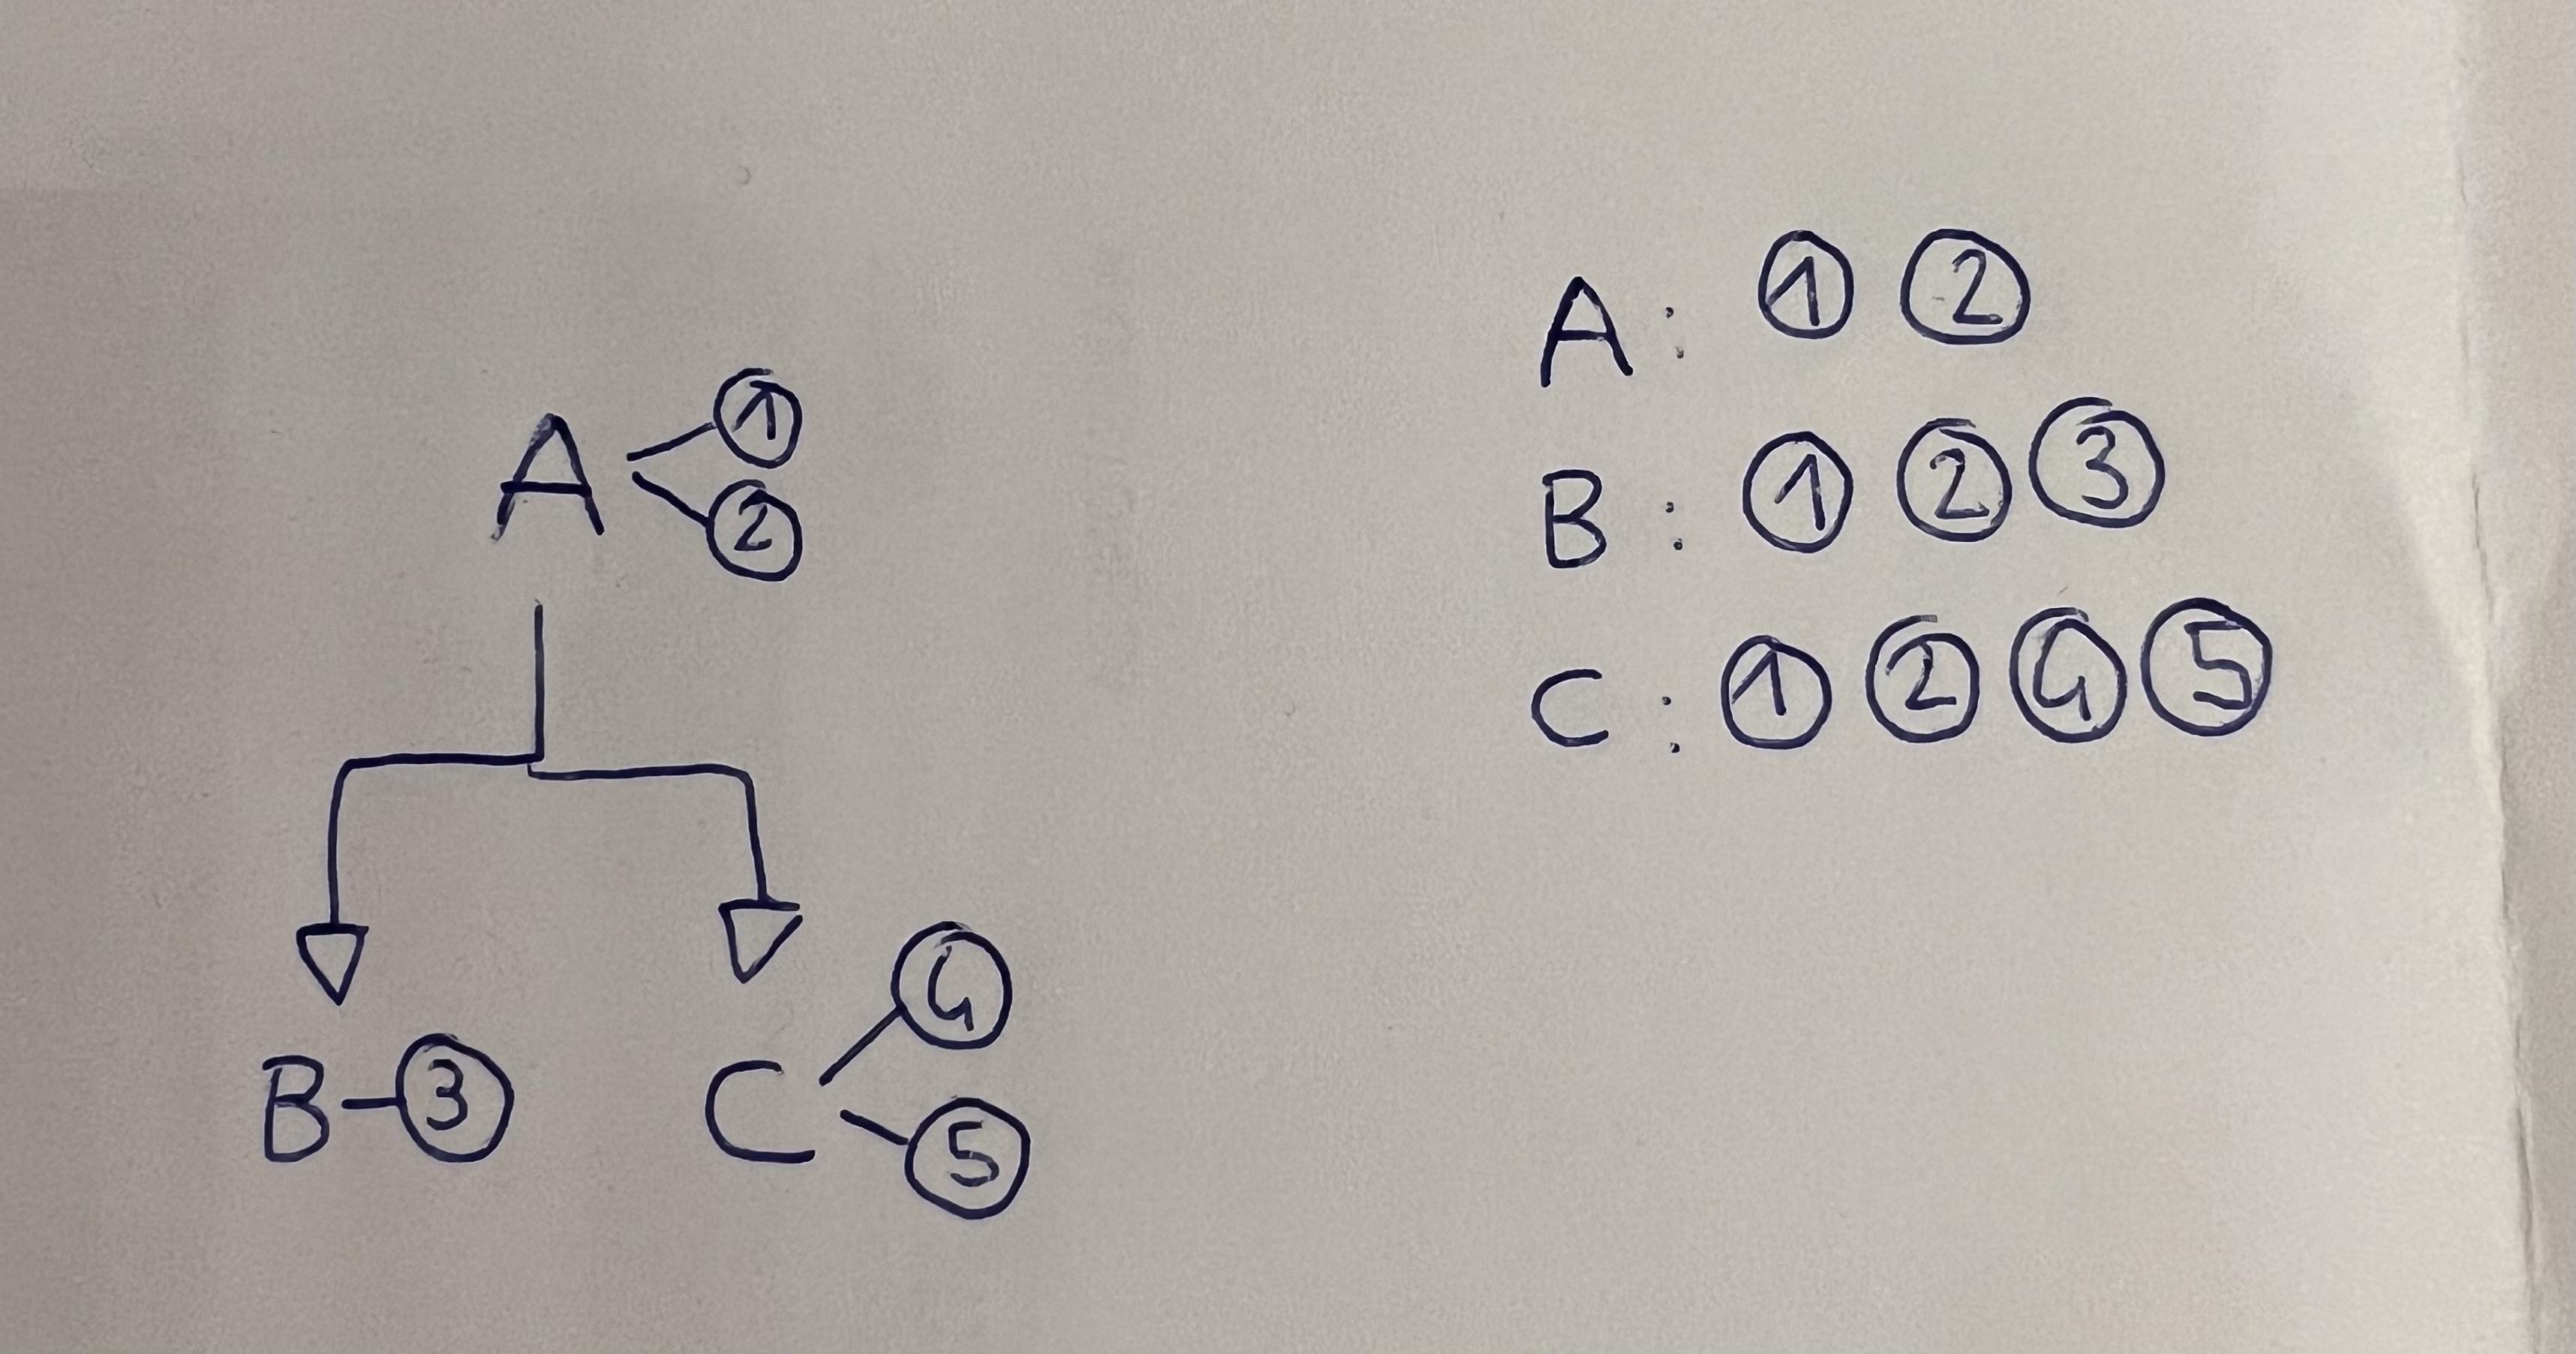 A ① ②
B ③ C ④ ⑤
A: ① ②
B: ① ② ③
C: ① ② ④ ⑤